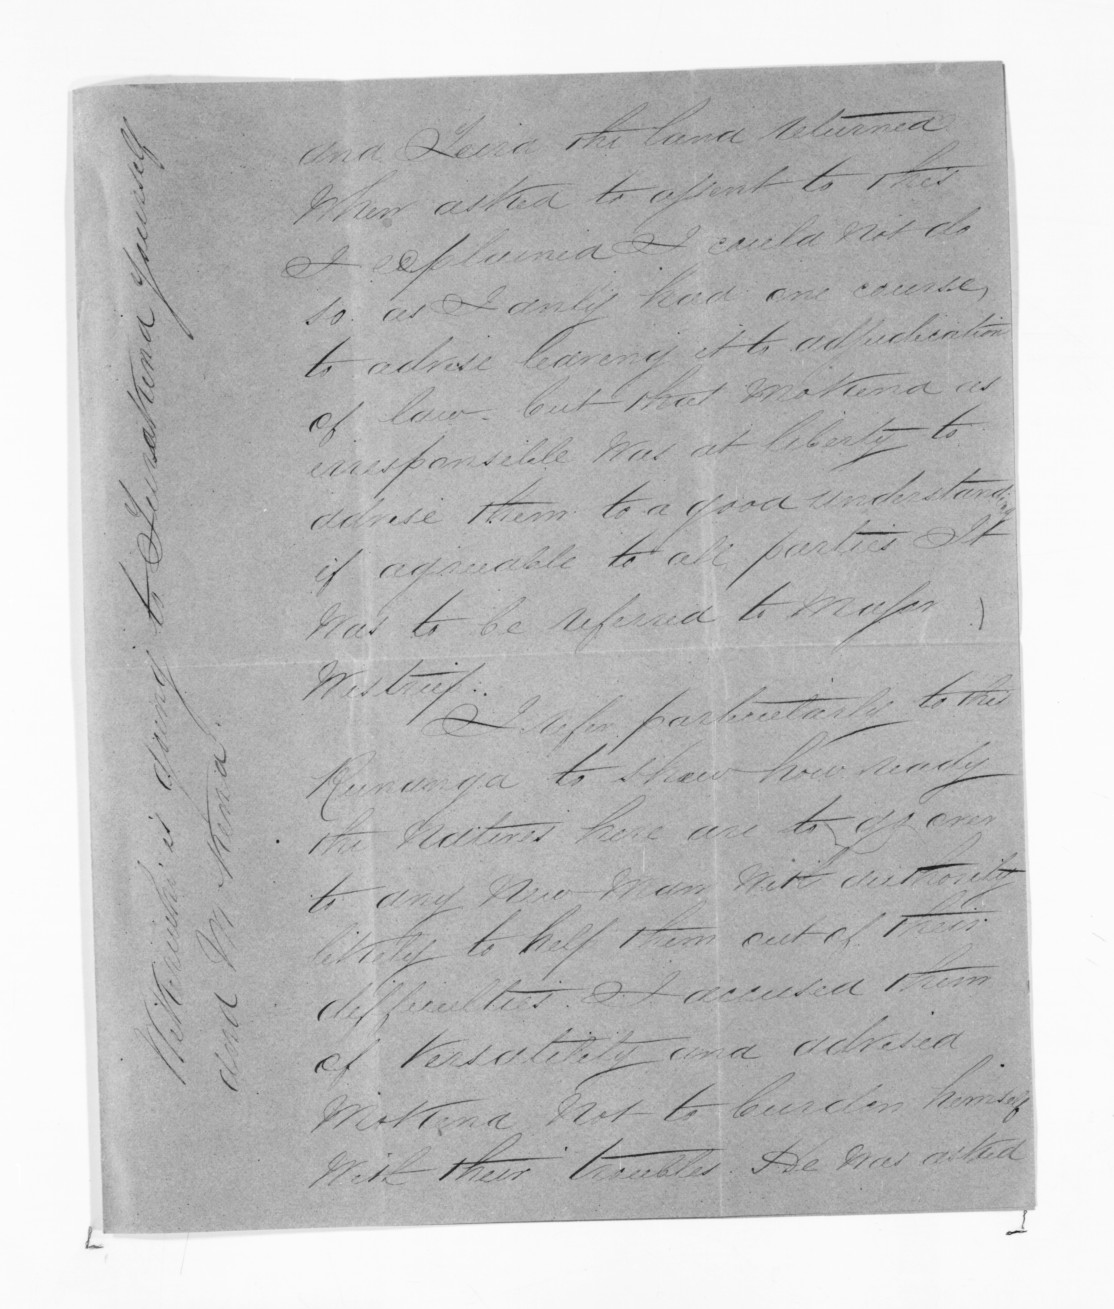 and Leird the land returned
When asked to assent to this
I explained I could not do
so as I only had one course,
to advise leaving it to adjudication
of law. but that Mokena as
irresponsible was at liberty to
advise them to a good understanding
if agreeable to all parties It
Was to be referred to Major
Westrup.
I refer particularly to this
Runanga to shew how ready
the Natives here are to go over
to any New Man With authority
likely to help them out of their
difficulties. I accused them
of Versatility and advised
Mokena Not to burden himself
With their troubles. He was asked
is going to yourself
and Mokena.